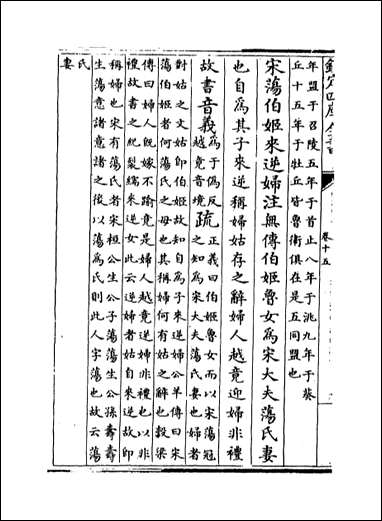 欽定四庫全書
卷十五
年盟于召陵五年于首止八年于洮九年于葵
丘十五年于牡丘皆魯衛俱在是五同盟也
宋蕩伯姬來逆婦注無傳伯姬魯女為宋大夫蕩氏妻
也自為其子來逆稱婦姑存之辭婦人越竟迎婦非禮
故書音義為于偽反越竟音境疏正義曰伯姬魯女而以宋蕩冠之知為宋大夫蕩氏妻也婦者
對姑之文姑即伯姬故知自為子來逆婦公羊傳曰宋
蕩伯姬者何蕩氏之母也其稱婦何有姑之辭也穀梁
傳曰婦人既嫁不踰竟是婦人越竟逆婦非禮也以非
禮故書之紀裂繻來逆女此云逆婦者姑自來逆故即
稱婦也宋有蕩氏者宋桓公生公子蕩蕩生公孫壽壽
生蕩意諸意諸之後以蕩為氏則此人字蕩也故云蕩
氏妻